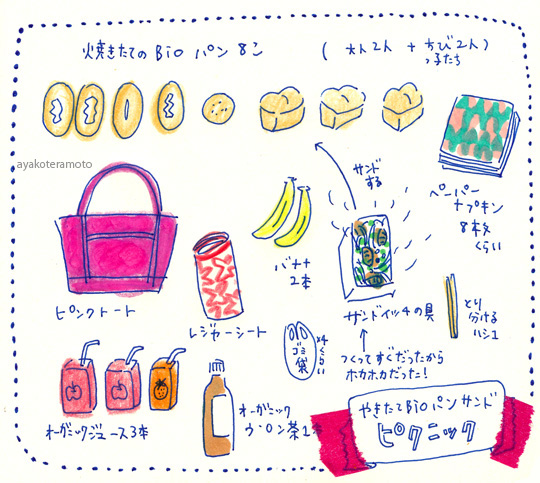 焼きたてのBioパン8こ
(大人2人 + ちび2人)
っ子たち
ayakoteramoto
サンド
する
ペーパー
ナプキン
8枚
くらい
バナナ
2本
ピンクトート
レジャーシート
サンドイッチの具
とり
分ける
ハシ1
ゴミ
袋
×4
くらい
つくってすぐだったから
ホカホカだった!
オーガニックジュース3本
オーガニック
ウーロン茶1本
やきたてBioパンサンド
ピクニック